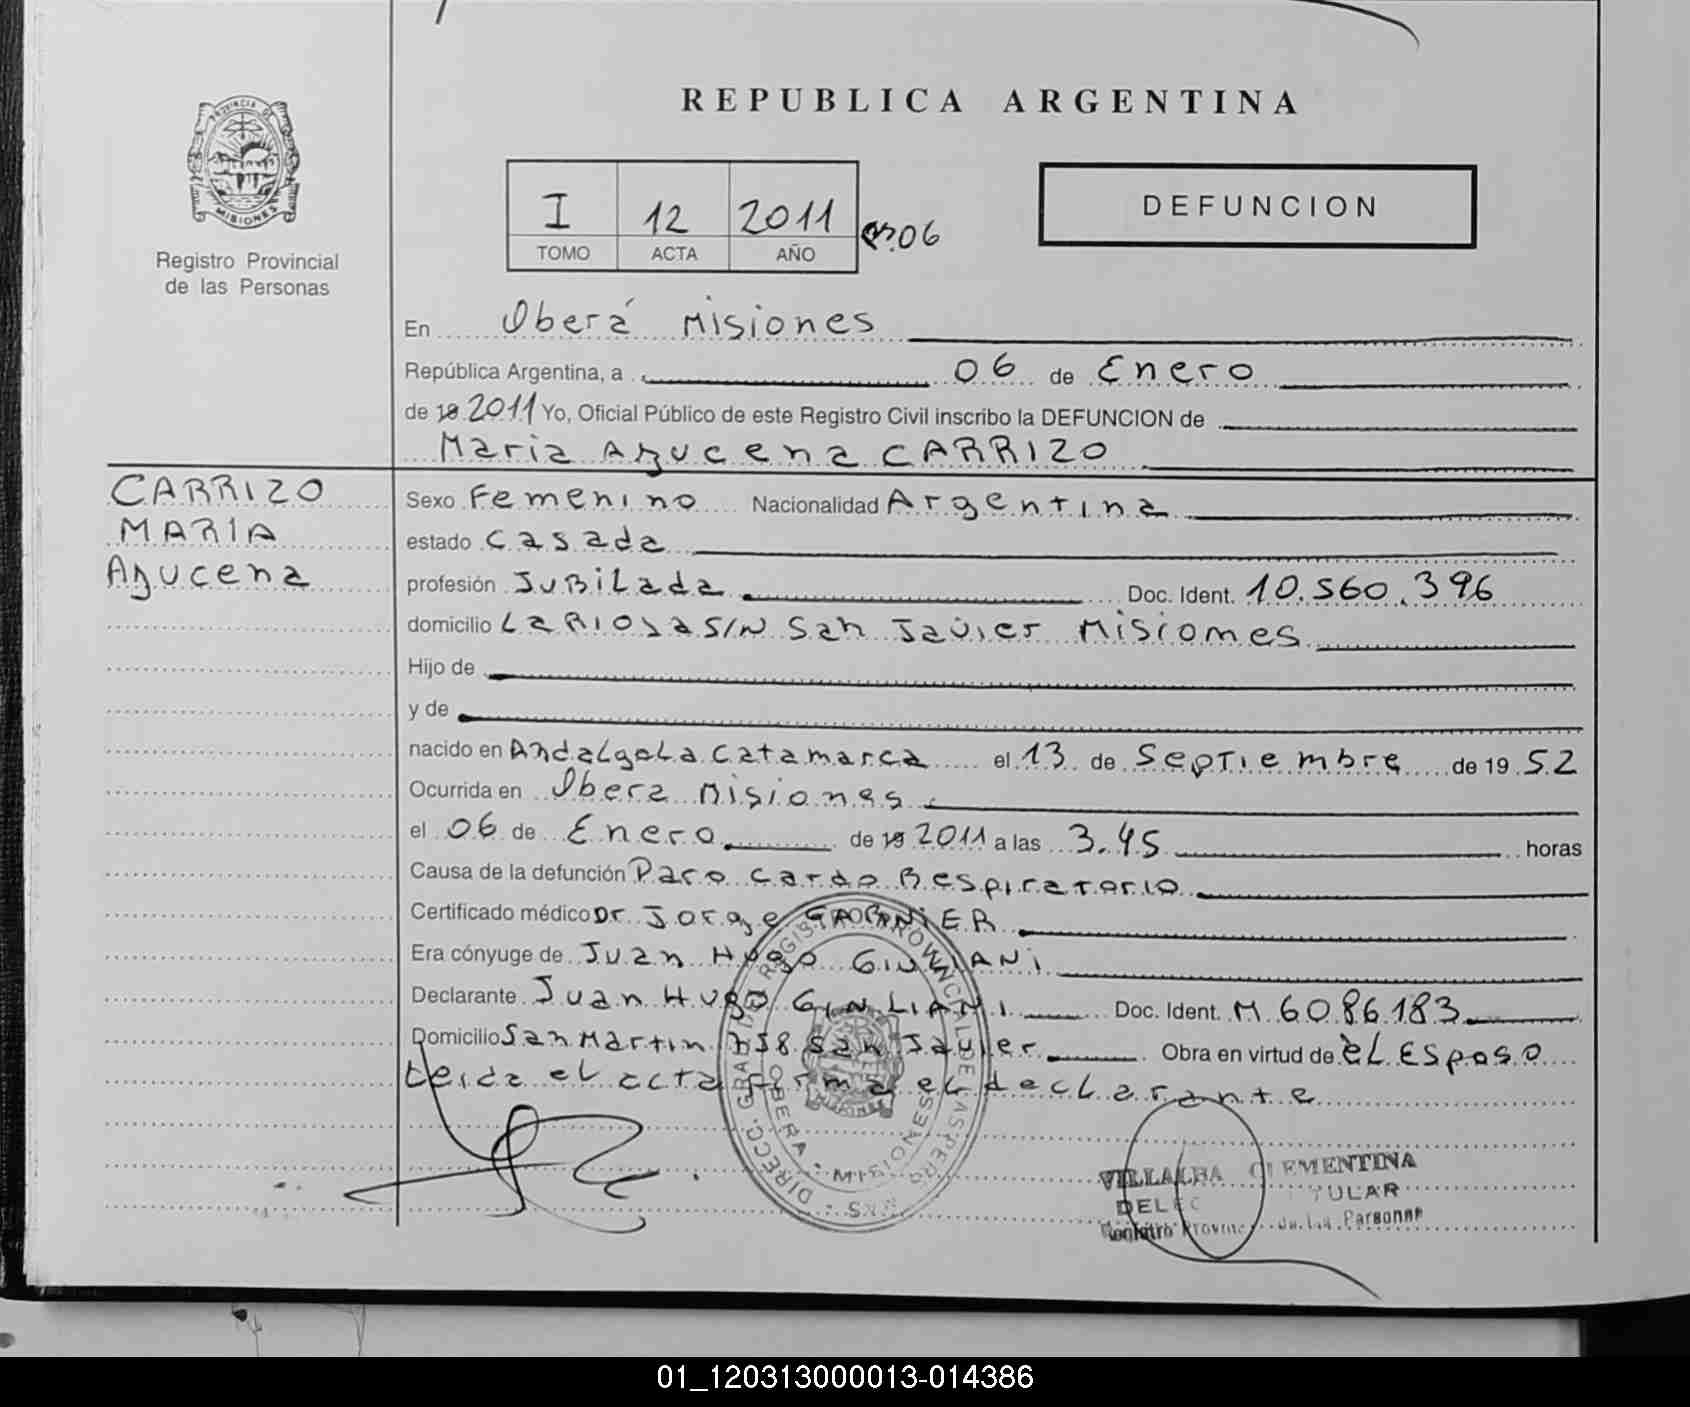 REPUBLICA ARGENTINA
PROVINCIA DE
MISIONES
Registro Provincial
de las Personas
I 12 2011
TOMO ACTA AÑO
06
DEFUNCION
En Oberá Misiones
República Argentina, a 06 de Enero
de 19 2011 Yo, Oficial Público de este Registro Civil inscribo la DEFUNCION de
Maria Azucena CARRIZO
CARRIZO
MARIA
Azucena
Sexo Femenino Nacionalidad Argentina
estado Casada
profesión JuBiLada Doc. Ident. 10.560.396
domicilio La Rioja S/N San Javier Misiones
Hijo de
y de
nacido en Andalgala Catamarca el 13 de Septiembre de 19 52
Ocurrida en Obera Misiones
el 06 de Enero de 19 2011 a las 3.45 horas
Causa de la defunción Paro Cardo Respiratorio
Certificado médico Dr. Jorge
Era cónyuge de Juan Hugo GiULiANi
Declarante Juan Hugo GiULiANi Doc. Ident. M 6086183
Domicilio San Martin 758 San Javier Obra en virtud de eL Esposo
Leida el acta firma el declarante
DIRECC. GRAL. DE REGISTRO PROVINCIAL DE LAS PERSONAS
OBERA - MISIONES
VILLALBA CLEMENTINA
Registro de las Personas
01_120313000013-014386